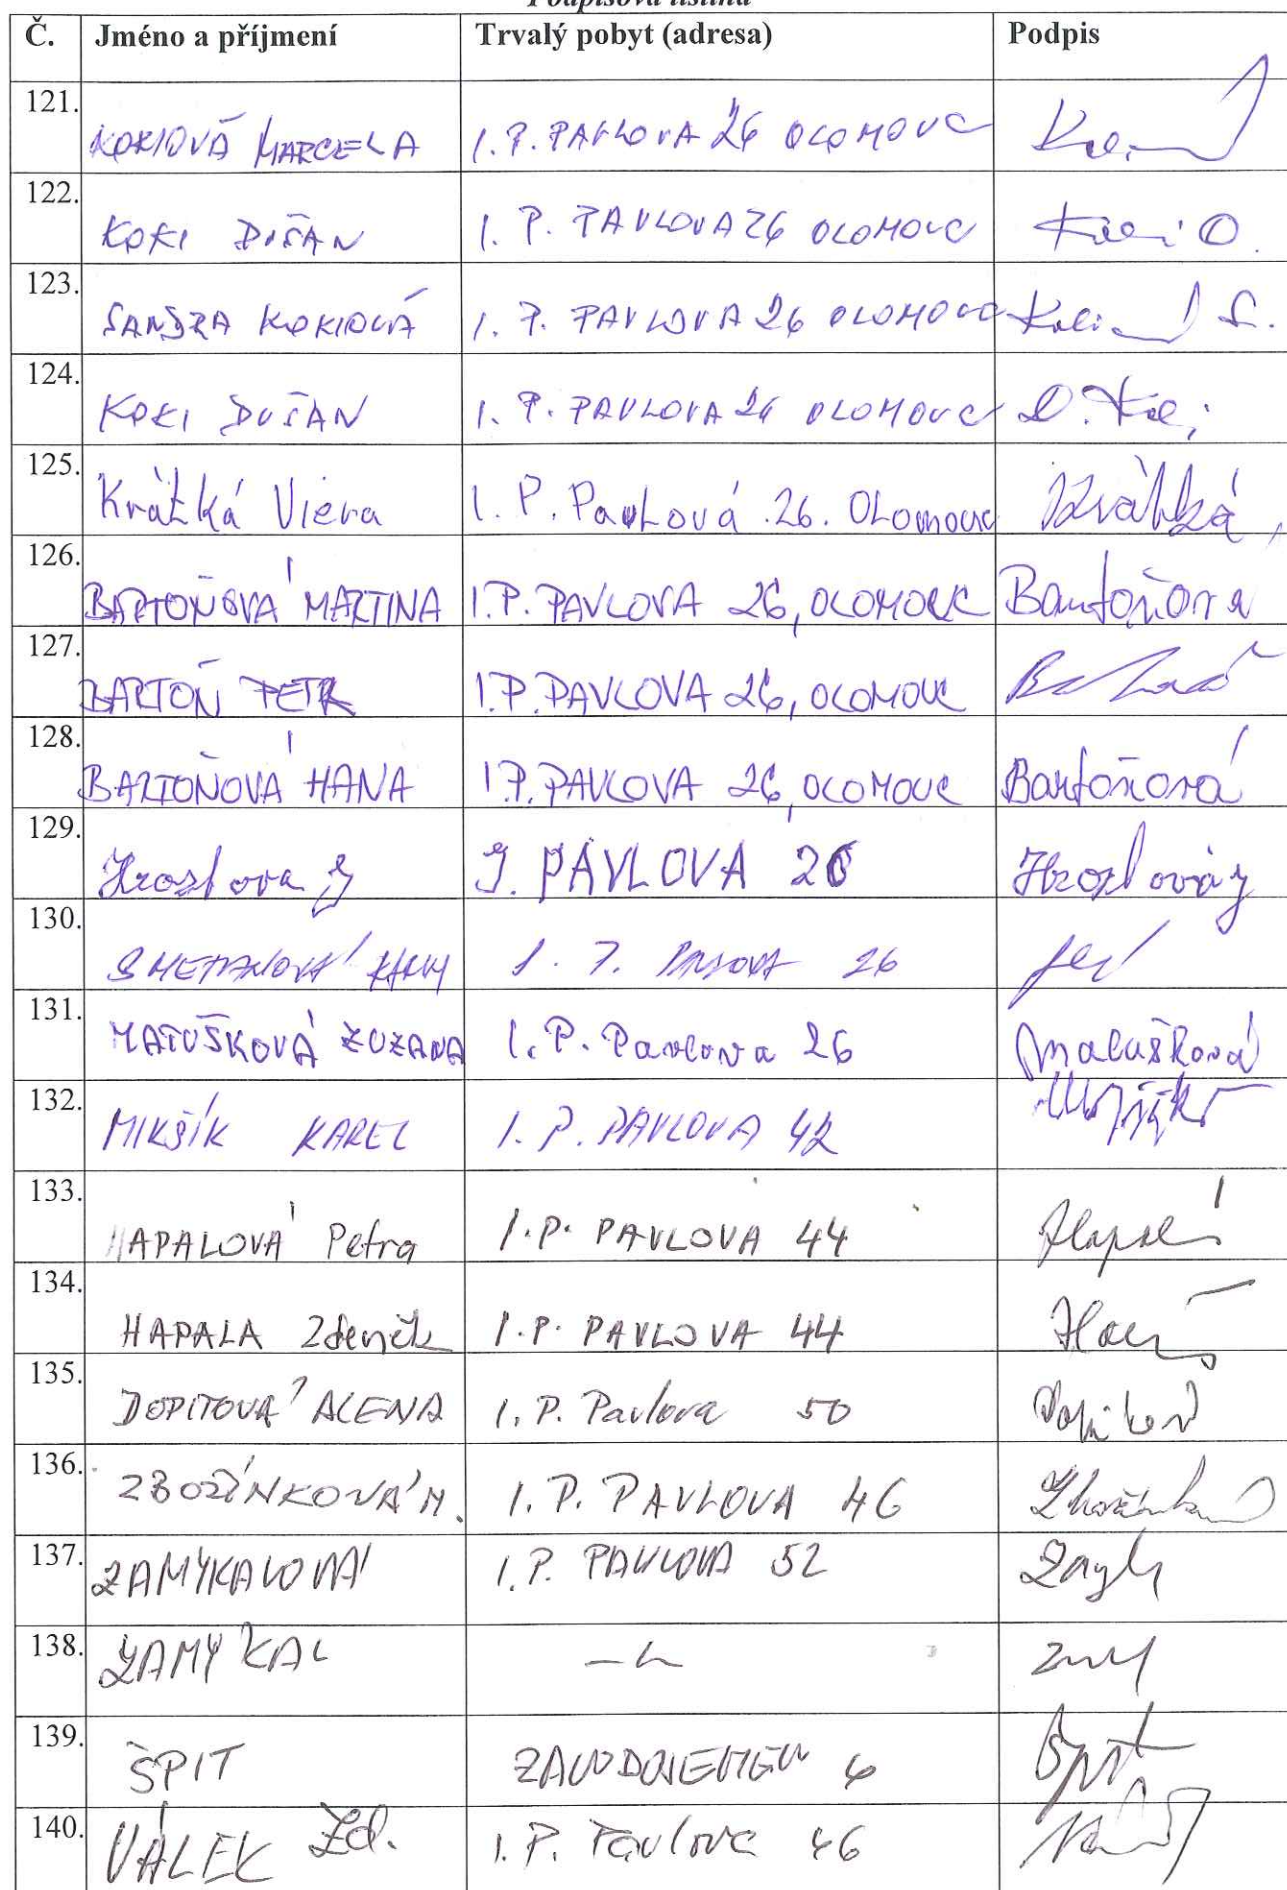 Podpisová listina
Č. Jméno a příjmení Trvalý pobyt (adresa) Podpis
121. KOKIOVÁ MARCELA I.P. PAVLOVA 26 OLOMOUC
122. KOKI DUŠAN I. P. PAVLOVA 26 OLOMOUC
123. SANDRA KOKIOVÁ I. P. PAVLOVA 26 OLOMOUC
124. KOKI DUŠAN I. P. PAVLOVA 26 OLOMOUC
125. Krátká Viera I. P. Pavlová .26. Olomouc Krátká
126. BARTOŇOVÁ MARTINA I.P. PAVLOVA 26, OLOMOUC Bartoňova
127. BARTOŇ PETR I.P. PAVLOVA 26, OLOMOUC
128. BARTOŇOVÁ HANA I.P. PAVLOVA 26, OLOMOUC Bartoňová
129. J. PAVLOVA 26
130. SMETANOVÁ 26
131. MATUŠKOVÁ ZUZANA I.P. Pavlova 26 Matušková
132. MIKŠÍK KAREL I. P. PAVLOVA 42
133. HAPALOVÁ Petra I.P. PAVLOVA 44
134. HAPALA Zdeněk I.P. PAVLOVA 44
135. DOPITOVÁ ALENA I. P. Pavlova 50
136. ZBOŽÍNKOVÁ M. I. P. PAVLOVA 46
137. ZAMYKALOVÁ I.P. PAVLOVA 52
138. ZAMYKAL
139. ŠPIT 6 Špit
140. VÁLEK Zd. I.P. Pavlova 46